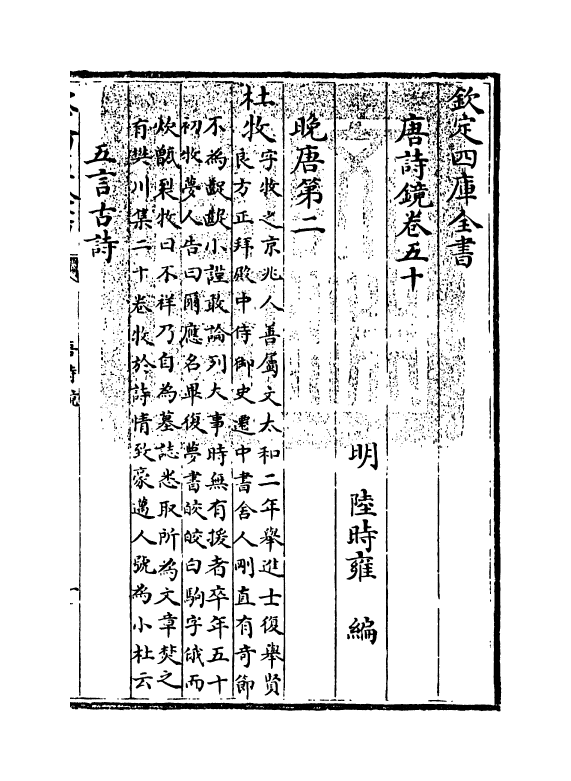 欽定四庫全書
唐詩鏡卷五十
明 陸時雍 編
晚唐第二
杜牧 字牧之京兆人善屬文太和二年舉進士復舉賢
良方正拜殿中侍御史遷中書舍人剛直有奇節
不為齪齪小謹敢論列大事時無有援者卒年五十
初牧夢人告曰爾應名畢復夢書皎皎白駒字俄而
炊甑裂牧曰不祥乃自為墓誌悉取所為文章焚之
有樊川集二十卷牧於詩情致豪邁人號為小杜云
五言古詩